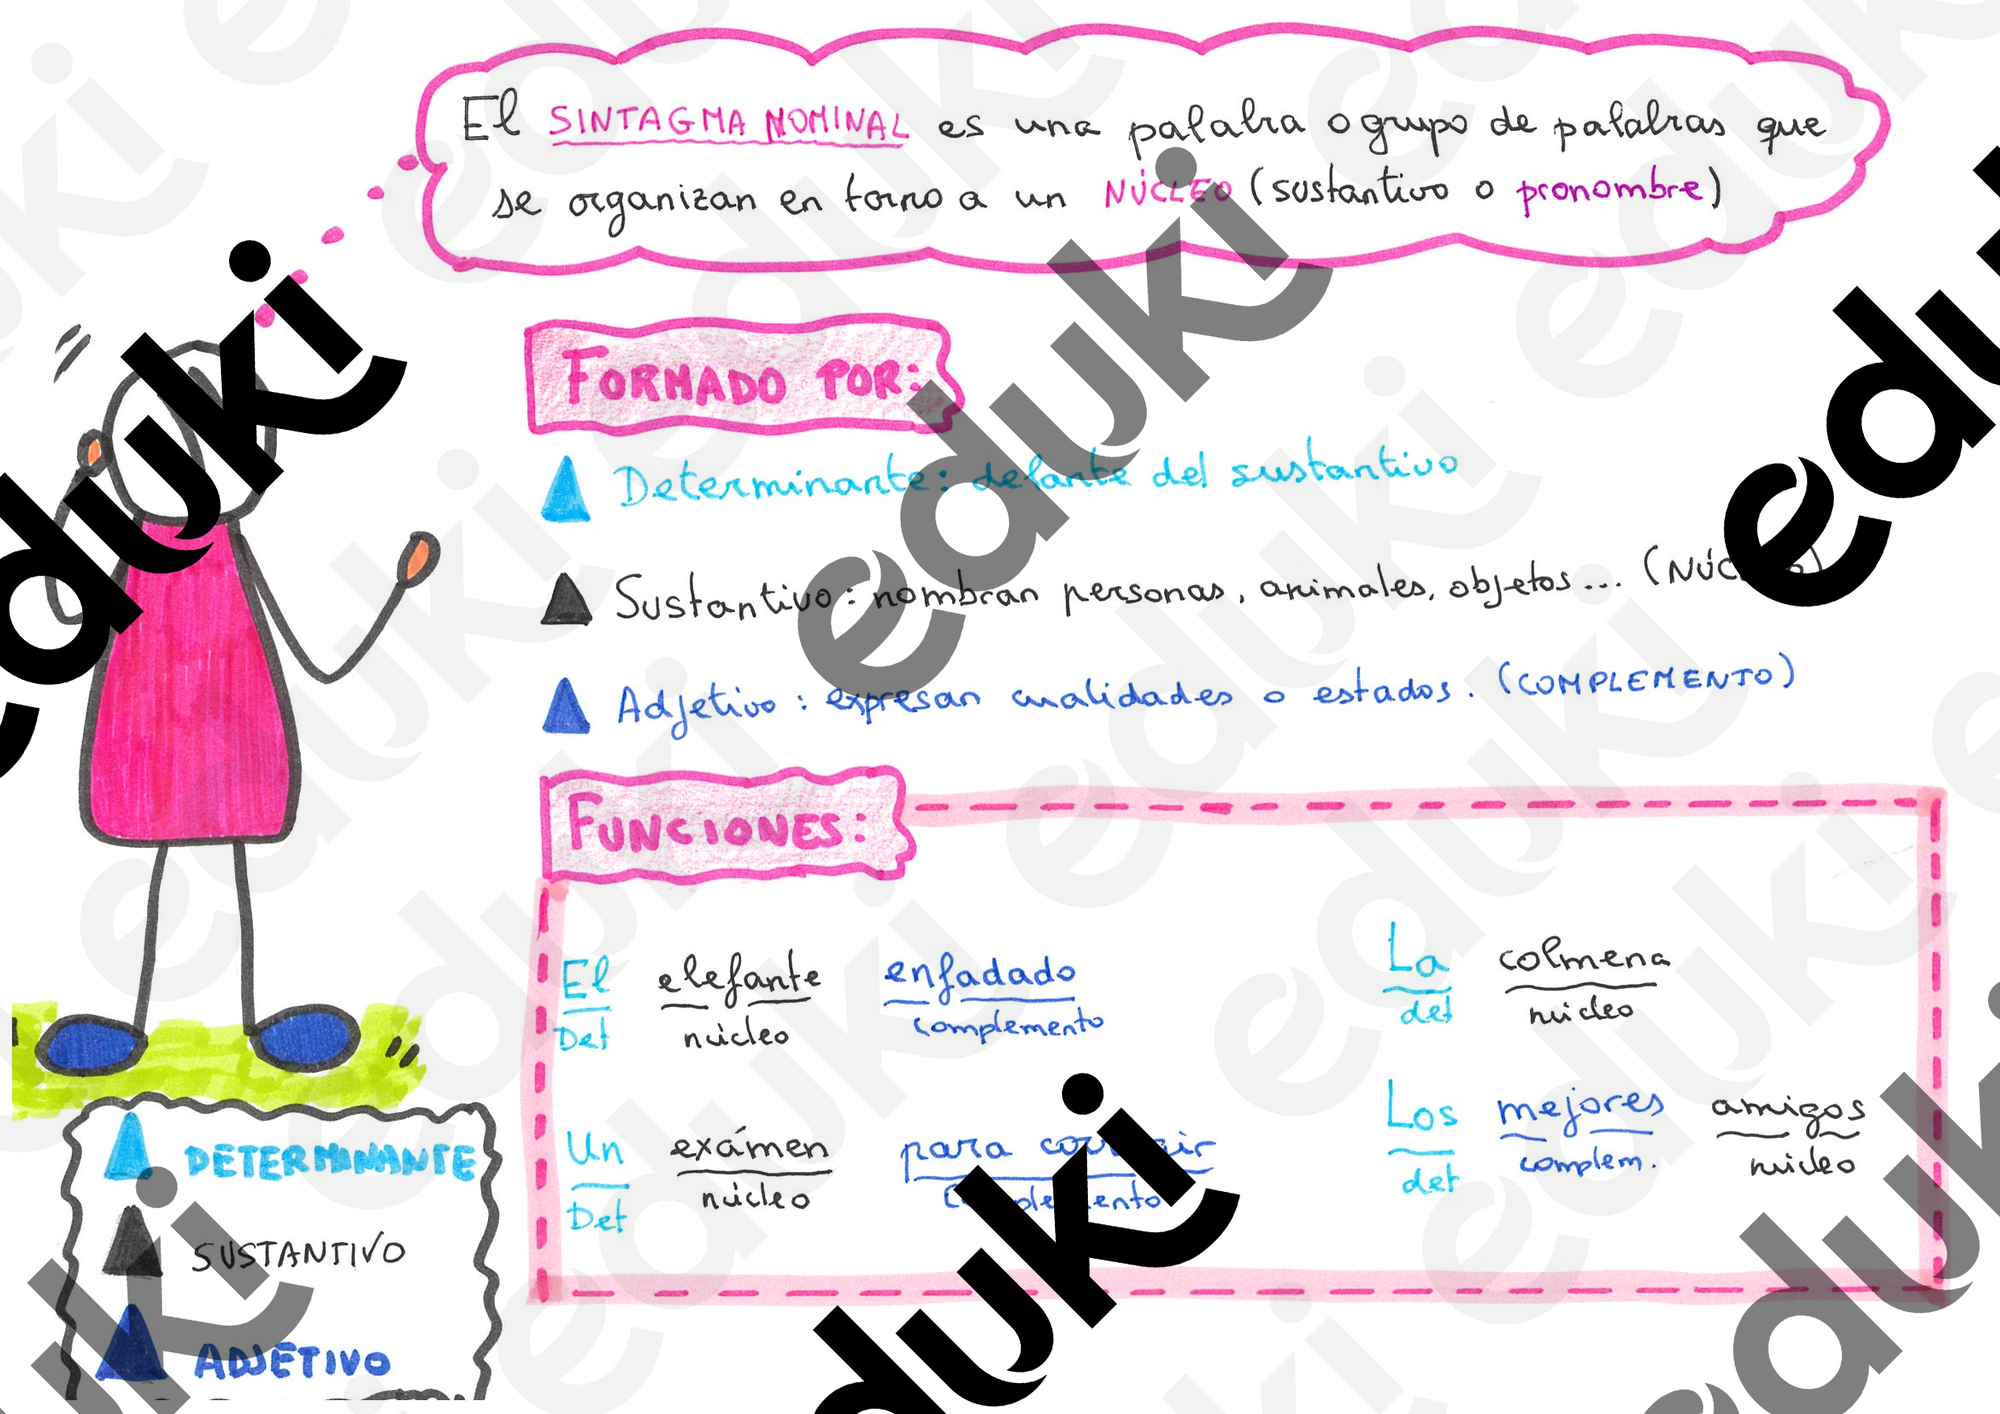 El SINTAGMA NOMINAL es una palabra o grupo de palabras que
se organizan en torno a un NÚCLEO (sustantivo o pronombre)
FORMADO POR:
Determinante: delante del sustantivo
Sustantivo: nombran personas, animales, objetos... (NÚCLEO)
Adjetivo: expresan cualidades o estados. (COMPLEMENTO)
FUNCIONES:
El elefante enfadado
Det núcleo complemento
La colmena
det núcleo
Un exámen para
Det núcleo complemento
Los mejores amigos
det complem. núcleo
DETERMINANTE
SUSTANTIVO
ADJETIVO
eduki
eduki
eduki
eduki
eduki
eduki